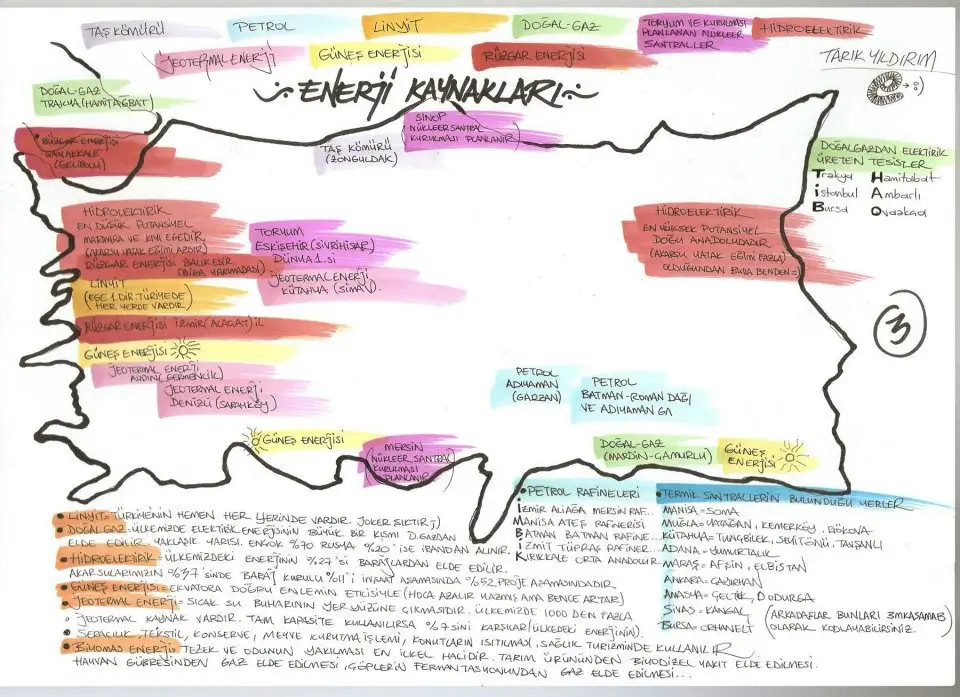 TAŞ KÖMÜRÜ
PETROL
LİNYİT
DOĞAL-GAZ
TORYUM VE KURULMASI
PLANLANAN NÜKLEER
SANTRALLER
HİDROELEKTİRİK
JEOTERMAL ENERJİ
GÜNEŞ ENERJİSİ
RÜZGAR ENERJİSİ
TARIK YILDIRIM
ENERJİ KAYNAKLARI
DOĞAL-GAZ
TRAKYA (HAMİTAĞBAT)
RÜZGAR ENERJİSİ
ÇANAKKALE
(GELİBOLU)
TAŞ KÖMÜRÜ
(ZONGULDAK)
SİNOP
NÜKLEER SANTRAL
KURULMASI PLANLANIR
DOĞALGAZDAN ELEKTİRİK
ÜRETEN TESİSLER
Trakya Hamitabat
İstanbul Ambarlı
Bursa Ovaakça
HİDROLEKTİRİK
EN DÜŞÜK PUTANSİYEL
MARMARA VE KIYI EGEDİR
(AKARSU YATAK EĞİMİ AZDIR)
RÜZGAR ENERJİSİ BALIKESİR
(BİGA YARIMADASI)
LİNYİT
(EGE 1.DİR. TÜRİYEDE
HER YERDE VARDIR)
RÜZGAR ENERJİSİ İZMİR (ALAÇAT) İL
GÜNEŞ ENERJİSİ
JEOTERMAL ENERJİ
AYDIN (GERMENCİK)
JEOTERMAL ENERJİ
DENİZLİ (SARAYKÖY)
TORYUM
ESKİŞEHİR (SİVRİHİSAR)
DÜNYA 1.Sİ
JEOTERMAL ENERJİ
KÜTAHYA (SİMAV).
HİDROELEKTİRİK
EN YÜKSEK PUTANSİYEL
DOĞU ANADOLUDADIR
(AKARSU YATAK EĞİMİ FAZLA)
OLDUĞUNDAN BUDA BENDEN =)
3
PETROL
ADIYAMAN
(GARZAN)
PETROL
BATMAN-ROMAN DAĞI
VE ADIYAMAN GA
GÜNEŞ ENERJİSİ
MERSİN
(NÜKLEER SANTRAL
KURULMASI
PLANLANIR
DOĞAL-GAZ
(MARDİN-ÇAMURLU)
GÜNEŞ
ENERJİSİ
• LİNYİT= TÜRKİYENİN HEMEN HER YERİNDE VARDIR. JOKER ŞIKTIR ;)
• DOĞALGAZ=ÜLKEMİZDE ELEKTİRİK ENERJİSİNİN BÜYÜK BİR KISMI D.GAZDAN
ELDE EDİLİR. YAKLAŞIK YARISI. ENÇOK %70 RUSYA %20'İSE İRANDAN ALINIR.
• HİDROELEKTİRİK=ÜLKEMİZDEKİ ENERJİNİN %27'Sİ BARAJLARDAN ELDE EDİLİR.
AKARSULARIMIZIN %37'SİNDE BARAJ KURULU %11'İ İNŞAAT AŞAMASINDA %52 PROJE AŞAMASINDADIR.
• GÜNEŞ ENERJİSİ=EKVATORA DOĞRU ENLEMİN ETKİSİYLE (HOCA AZALIR YAZMIŞ AMA BENCE ARTAR)
• JEOTERMAL ENERJİ= SICAK SU BUHARININ YER YÜZÜNE ÇIKMASIDIR. ÜLKEMİZDE 1000 DEN FAZLA
o JEOTERMAL KAYNAK VARDIR. TAM KAPASİTE KULLANILIRSA %7 SİNİ KARŞILAR (ÜLKEDEKİ ENERJİNİN).
• SERACILIK, TEKSTİL, KONSERVE, MEYVE KURUTMA İŞLEMİ, KONUTLARIN ISITILMASI, SAĞLIK TURİZMİNDE KULLANILIR
• BİYOMAS ENERJİ= TEZEK VE ODUNUN YAKILMASI EN İLKEL HALİDİR. TARIM ÜRÜNÜNDEN BİYODİZEL YAKIT ELDE EDİLMESİ
HAYVAN GÜBRESİNDEN GAZ ELDE EDİLMESİ, ÇÖPLERİN FERMANTASYONUNDAN GAZ ELDE EDİLMESİ...
• PETROL RAFİNELERİ
İZMİR ALİAĞA MERSİN RAF...
MANİSA ATEŞ RAFİNERİSİ
BATMAN BATMAN RAFİNE...
İZMİT TÜPRAŞ RAFİNER...
KIRIKKALE ORTA ANADOLUR
• TERMİK SANTRALLERİN BULUNDUĞU YERLER
MANİSA=SOMA
MUĞLA=YATAĞAN, KEMERKÖY, GÖKOVA
KÜTAHYA=TUNÇBİLEK, SEYİTÖMÜ, TAVŞANLI
ADANA=YUMURTALIK
MARAŞ=AFŞİN, ELBİSTAN
ANKARA=ÇAYIRHAN
AMASYA=ÇELTİK, DODURGA
SİVAS=KANGAL
BURSA=ORHANELİ
(ARKADAŞLAR BUNLARI 3MKASAMAB)
OLARAK KODLAYABİLİRSİNİZ.